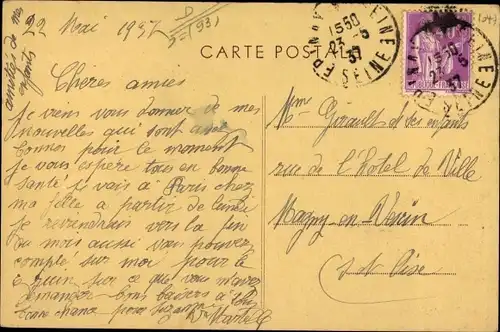 22 Mai 1937
CARTE POSTALE
amitiés de mes
enfants
Chères amies
je viens vous donner de mes
nouvelles qui sont assez
bonnes pour le moment
je vous espère tous en bonne
santé je vais à Paris chez
ma fille a partir de lundi
je reviendrais vers la fin
du mois aussi vous pouvez
compté sur moi pour le
juin sur ce que vous m'avez
demander bons baisers à tous
bonne chance pour
Mme Girault et des enfants
rue de l'Hotel de Ville
Magny en Vexin
S et Oise
15 30
23 -5
37
SEINE